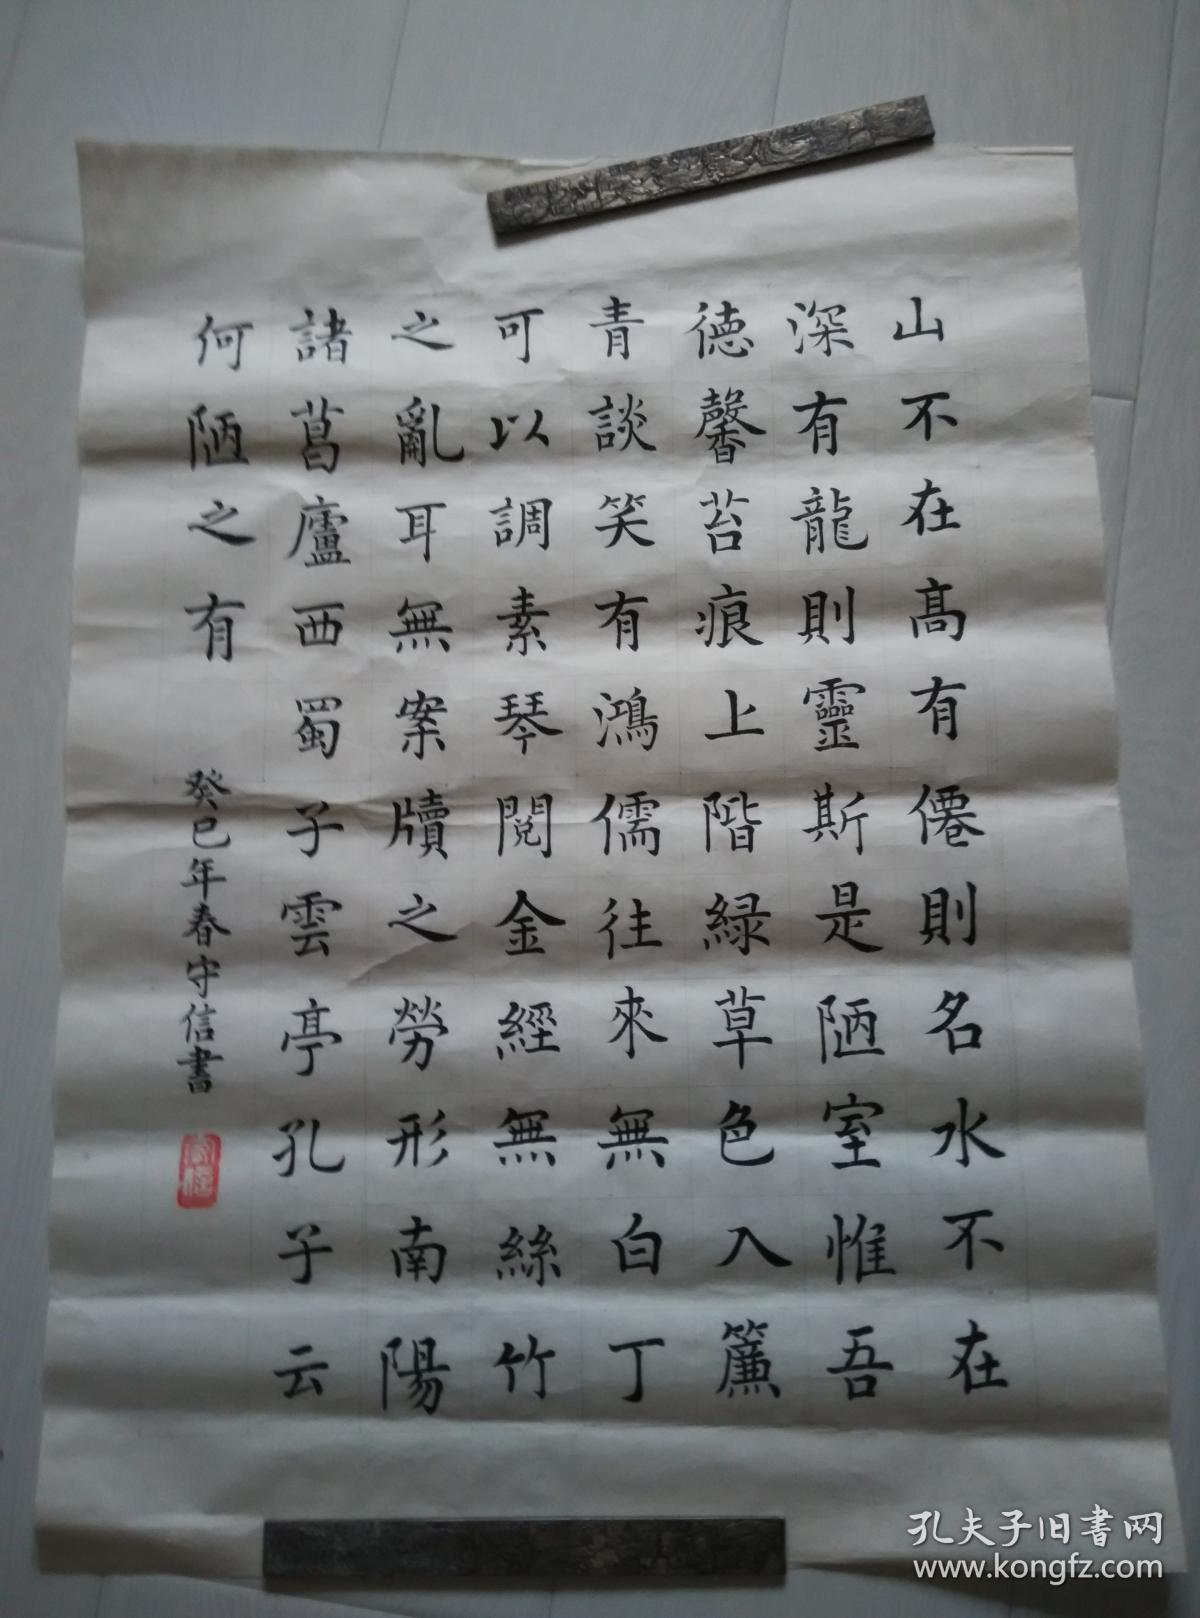 山不在高有僊則名水不在
深有龍則靈斯是陋室惟吾
德馨苔痕上階緑草色入簾
青談笑有鴻儒往來無白丁
可以調素琴閱金經無絲竹
之亂耳無案牘之勞形南陽
諸葛廬西蜀子雲亭孔子云
何陋之有
癸巳年春守信書
孔夫子旧書网
www.kongfz.com